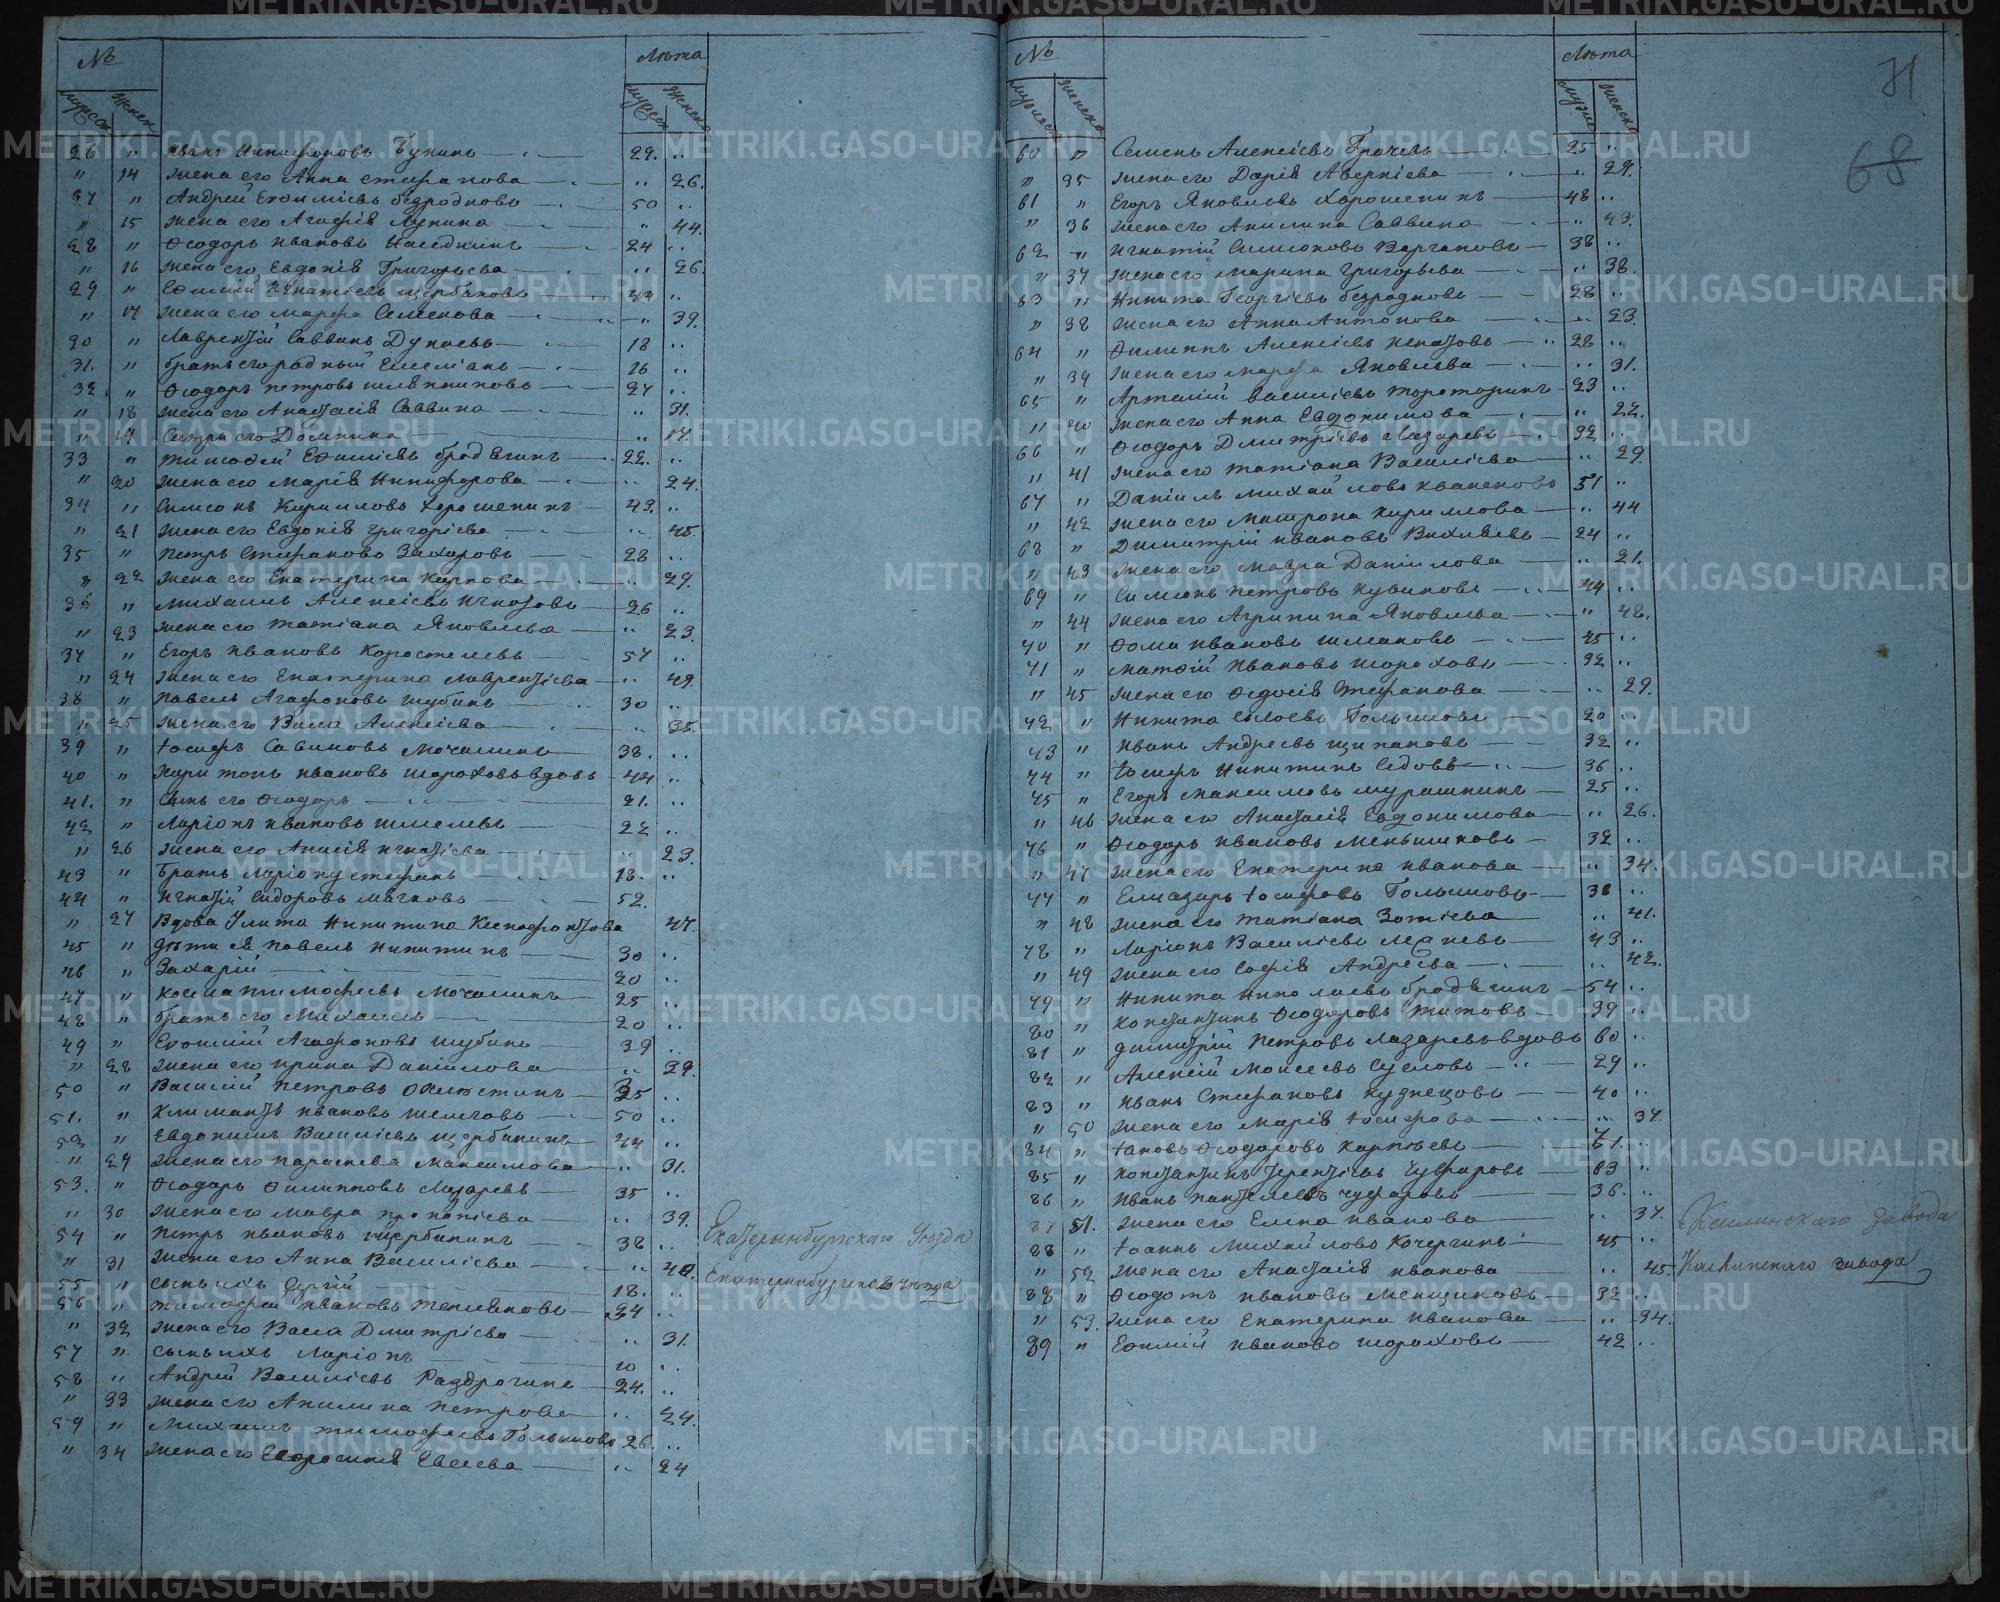 №
Лѣта
мужск
женск
мужск
женск
26 " Иванъ Никифоровъ Бунинъ 29. ..
" 14 жена его Анна Стефанова .. 26.
27 " Андрей Ефимiевъ Безродновъ 50 ..
" 15 жена его Агафiя Лупина " 44.
28 " Ѳеодоръ Ивановъ 24 ..
" 16 жена его Евдокiя Григорьева .. 26.
29 " Евѳимiй Игнатiевъ Щербаковъ ..
" 17 жена его Марфа Семенова " 39.
30 " Лаврентiй Саввинъ Дунаевъ 18 ..
31. " братъ его родный Емелiанъ 16 ..
32. " Ѳеодоръ Петровъ 27 ..
" 18 жена его Анастасiя Саввина .. 31.
" 19 Сестра его Домнина .. 17.
33 " Тимоѳей Евѳимiевъ Бродягинъ 22. ..
" 20 жена его Марiя Никифорова .. 24.
34 " Симеонъ Кирилловъ Хорошенинъ 43. ..
" 21 жена его Евдокiя Григорiева .. 45.
35 " Петръ Стефановъ Захаровъ 28 ..
" 22 жена его Екатерина Карпова .. 29.
36 " Михаилъ Алексiевъ Игнатовъ 26 ..
" 23 жена его Татiана Яковлева .. 23.
37 " Егоръ Ивановъ Коростелевъ 57 ..
" 24 жена его Екатерина Лаврентiева .. 49.
38 " Павелъ Агафоновъ Шубинъ 30 ..
" 25 жена его Васса Алексiева .. 35.
39 " Iосифъ Савиновъ Мочалинъ 38. ..
40 " Харитонъ Ивановъ Шороховъ вдовъ 44 ..
41. " Сынъ его Ѳеодоръ 21. ..
42 " Ларiонъ Ивановъ Шмелевъ 22 ..
" 26 жена его Анисiя Игнатiева .. 23.
43 " Братъ Ларiону Стефанъ 18. ..
44 " Игнатiй Сидоровъ Мягковъ 52.
" 27 Вдова Улита Никитина Ксенофонтова 47.
45 " дѣти ея Павелъ Никитинъ 30 ..
46 " Захарiй 20 ..
47 " Косма Тимофеевъ Мочалинъ 25 ..
48 " братъ его Михаилъ 20 ..
49 " Евѳимiй Агафоновъ Шубинъ 39 ..
" 28 жена его Ирина Данiилова .. 29.
50 " Василiй Петровъ 35 ..
51. " Климантъ Ивановъ Шелеговъ 50 ..
52 " Евдокимъ Василiевъ Щербининъ 44 ..
" 29 жена его Параскева Максимова .. 31.
53. " Ѳеодоръ Филипповъ Лазаревъ 35 ..
" 30 жена его Мавра Прокопiева .. 39.
54 " Петръ Ивановъ Щербининъ 38 .. Екатеринбургскаго Уѣзда
" 31 жена его Анна Василiева " 40. Екатеринбургскаго уѣзда
55 " сынъ ихъ Сергiй 18. ..
56 " Тимофей Ивановъ Тепляковъ 34 ..
" 32 жена его Васса Дмитрiева .. 31.
57 " сынъ ихъ Ларiонъ 10 ..
58 " Андрей Василiевъ Раздрогинъ 24. ..
" 33 жена его Акилина Петрова .. 24.
59 " Михаилъ Тимофеевъ Голышовъ 26. ..
" 34 жена его Евфросинiя Евсеева .. 24
№
Лѣта
мужск
женска
мужс
женска
71
68
60 " Семенъ Алексiевъ Грачевъ 25 ..
" 35 жена его Дарiя Аверкiева .. 29.
61 " Егоръ Яковлевъ Хорошенинъ 48 ..
" 36 жена его Акилина Саввина .. 43.
62 " Игнатiй Симеоновъ Варгановъ 38 ..
" 37 жена его Марина Григорьева " 38.
63 " Никита Георгiевъ Безродновъ 28 ..
" 38 жена его Анна Антонова .. 23.
64 " Филиппъ Алексiевъ Игнатовъ 28 ..
" 39 жена его Марфа Яковлева .. 31.
65 " Артемiй Василiевъ Тороторинъ 23 ..
" 40 жена его Анна Евдокимова " 22.
66 " Ѳеодоръ Дмитрiевъ Лазаревъ 32 ..
" 41 жена его Татiана Василiева .. 29.
67 " Данiилъ Михайловъ 51 "
" 42 жена его Матрона Кирилова .. 44
68 " Димитрiй Ивановъ Вихляевъ 24 ..
" 43 жена его Мавра Данiилова .. 21.
69 " Симеонъ Петровъ Кувиновъ 44 ..
" 44 жена его Агрипина Яковлева " 48.
70 " Ѳома Ивановъ Шмаковъ 45 ..
71 " Матѳiй Ивановъ Шороховъ 32 ..
" 45 жена его Ѳедосiя Стефанова .. 29.
72 " Никита Голышовъ 20 ..
73 " Иванъ Андреевъ Щипановъ 32 ..
74 " Iосифъ Никитинъ Седовъ 36 ..
75 " Егоръ Максимовъ Мурашкинъ 25 ..
" 46 жена его Анастасiя Евдокимова " 26.
76 " Ѳеодоръ Ивановъ Меньшиковъ 32 ..
" 47 жена его Екатерина Иванова .. 34.
77 " Елиазаръ Iосифовъ Голышовъ 38 ..
" 48 жена его Татiана Зотiева .. 41.
78 " Ларiонъ Василiевъ 43 ..
" 49 жена его Софiя Андреева .. 42.
79 " Никита Николаевъ Бродягинъ 54 ..
80 " Константинъ Ѳеодоровъ Титовъ 39 ..
81 " Димитрiй Петровъ Лазаревъ вдовъ 60 ..
82 " Алексiй Моисеевъ Сусловъ 29 ..
83 " Иванъ Стефановъ Кузнецовъ 40 ..
" 50 жена его Марiя Iосифова .. 37.
84 " Iаковъ Ѳеодоровъ Карпѣевъ ..
85 " Константинъ Терентiевъ Чуфаровъ 63 ..
86 " Иванъ Пантелеевъ Чуфаровъ 36. ..
87 51. жена его Елена Иванова .. 37. Каслинскаго завода
88 " Iоаннъ Михайловъ Кочергинъ 45 ..
" 52 жена его Анастасiя Иванова .. 45. Каслинскаго завода
88 " Ѳедотъ Ивановъ Меншиковъ 32 ..
" 53. жена его Екатерина Иванова .. 34.
89 " Евѳимiй Ивановъ Шороховъ 42 ..